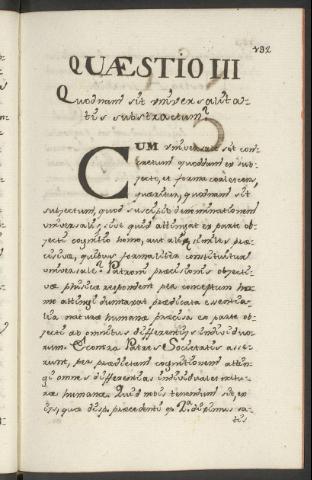 132
QUÆSTIO III
Quodnam sit universalita-
tis substractum?
CUM universale sit con-
cretum quoddam ex sub-
jecto, et forma coalescens,
quæritur, quodnam sit
subjectum, quod suscipit denominationem
universalis, sive quid attingat ex parte ob-
jecti cognitio homo, aut alia similis præ-
cisiva, quibus formaliter constituitur
universale? Patroni præcisionis objecti-
væ physicæ respondent per conceptum ho-
mo attingi dumtaxat prædicata essentia-
lia naturæ humanæ præcisa ex parte ob-
jecti ab omnibus differentiis individuo-
rum. E contra Patres Societatis asse-
runt, per prædictam cognitionem attin-
gi omnes differentias individuales natu-
ræ humanæ. Quid nobis tenendum sit, ex
iis, quæ disp. præcedenti q. diximus sa-
tis